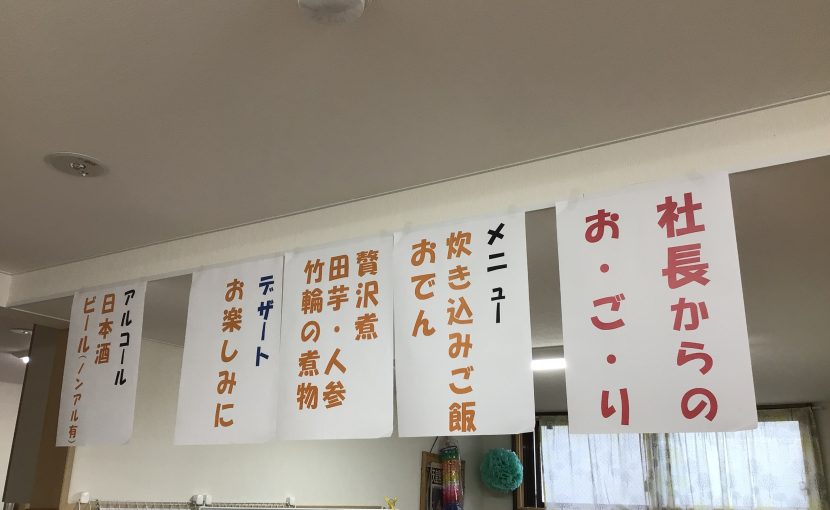 社長からの
お・ご・り
メニュー
炊き込みご飯
おでん
贅沢煮
田芋・人参
竹輪の煮物
デザート
お楽しみに
アルコール
日本酒
ビール(ノンアル有)